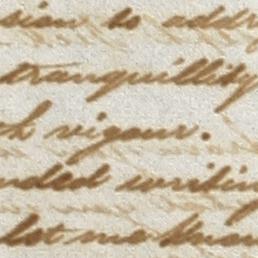 sion to addr
tranquillity
h vigour.
nded writin
let me know